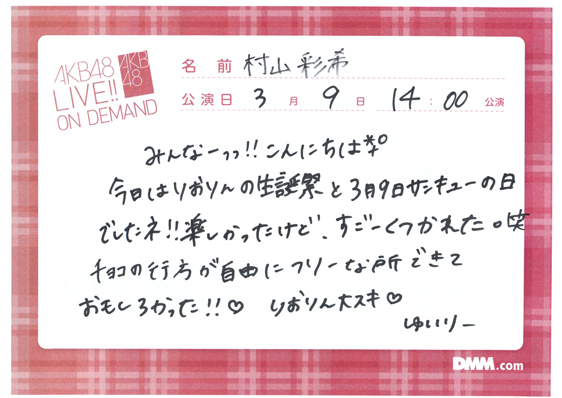 AKB48
LIVE!!
ON DEMAND
AKB
48
名前 村山彩希
公演日 3月9日 14:00 公演
みんなーっっ!!こんにちは
今日はりおりんの生誕祭と3月9日サンキューの日
でしたネ!!楽しかったけど、すごーくつかれた。笑
チョコの行方が自由にフリーな所できて
おもしろかった!!♡ りおりん大スキ♡
ゆいりー
DMM.com